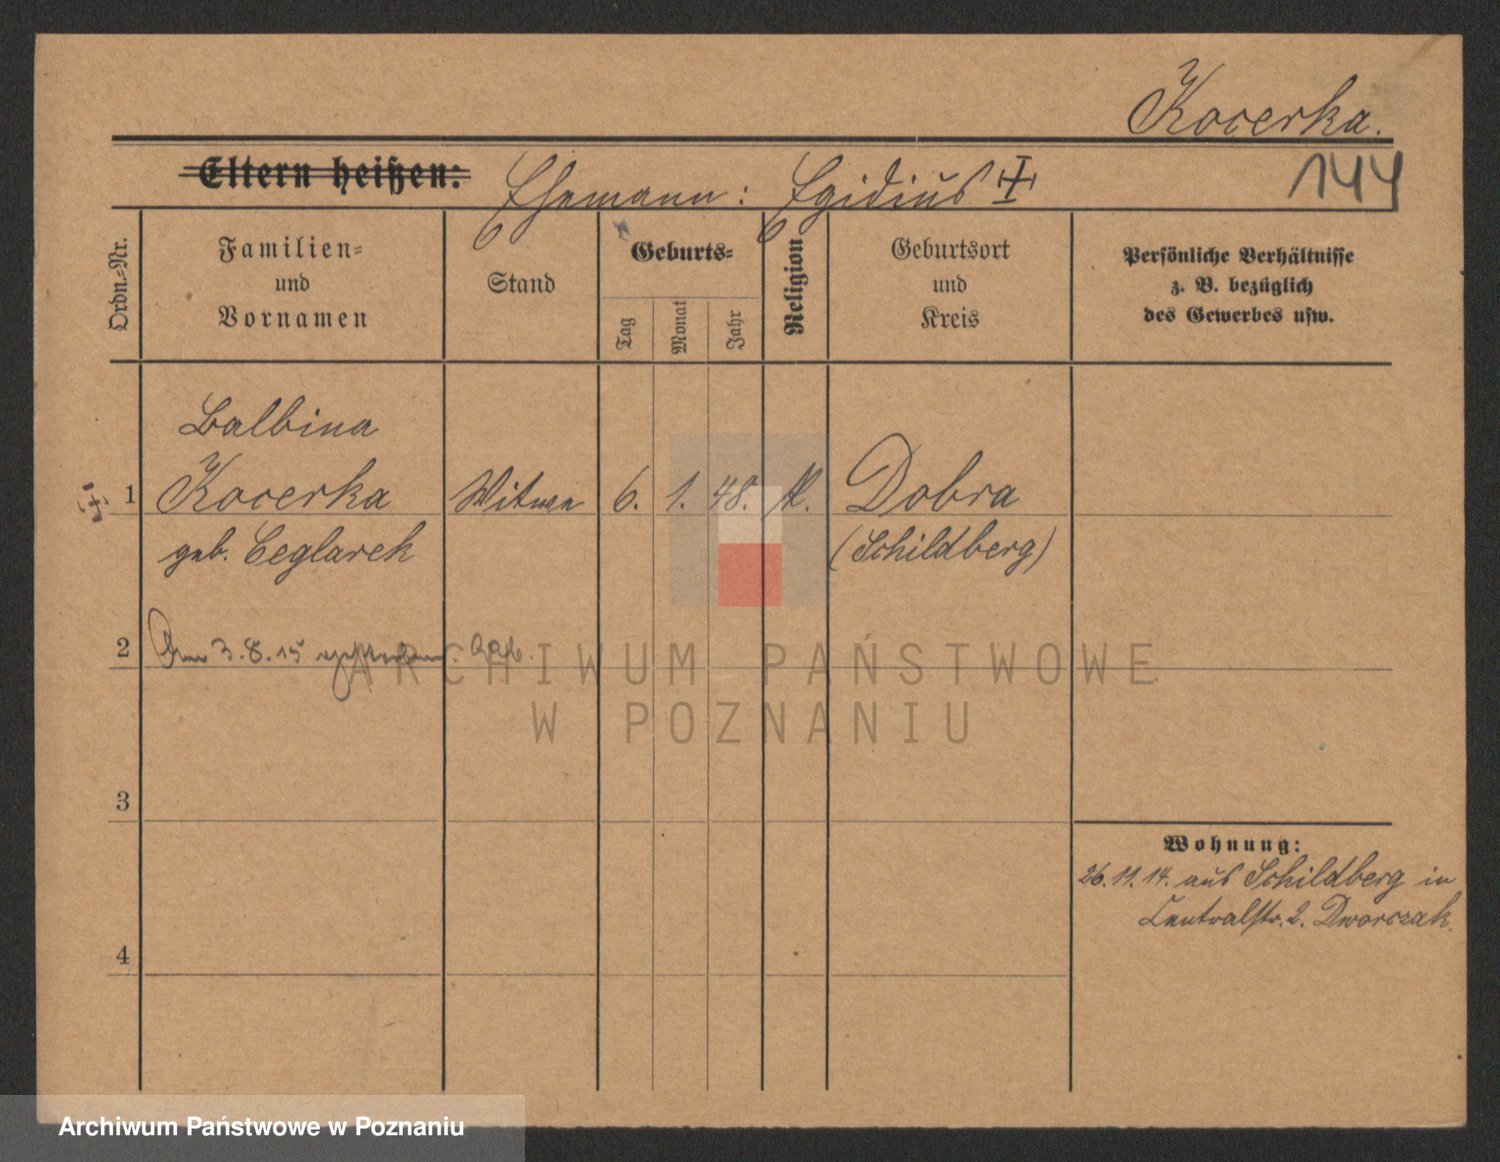 Kocerka.
Eltern heißen: Ehemann: Egidius
144
Ordn.=Nr.
Familien=
und
Vornamen
Stand
Geburts=
Tag
Monat
Jahr
Religion
Geburtsort
und
Kreis
Persönliche Verhältnisse
z. B. bezüglich
des Gewerbes usw.
Balbina
1 Kocerka Witwe 6. 1. 48. K. Dobra
geb. Ceglarek (Schildberg)
2 Am 3.8.15 gestorben.
3
4
Wohnung:
26.11.14. aus Schildberg in
Centralstr. 2. Dworczak.
ARCHIWUM PAŃSTWOWE
W POZNANIU
Archiwum Państwowe w Poznaniu